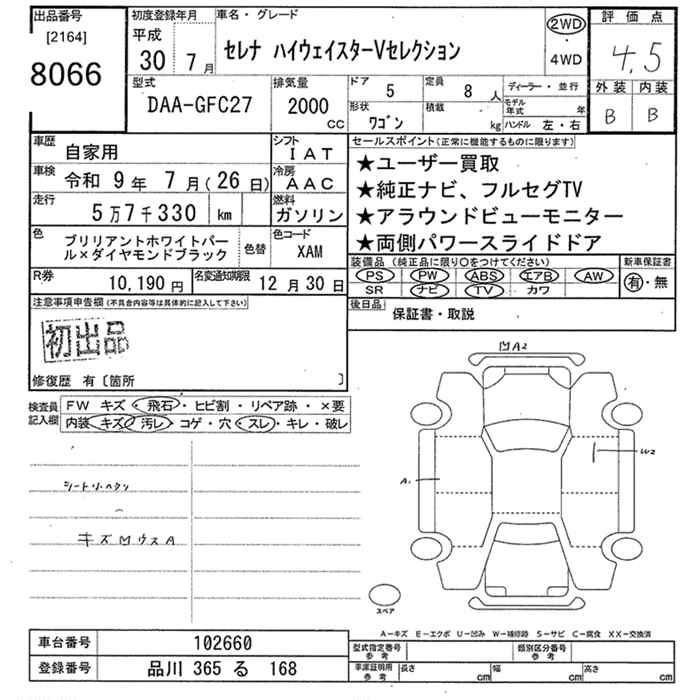 出品番号
[2164]
8066
初度登録年月
平成
30 7月
車名・グレード
セレナ ハイウェイスターVセレクション
2WD
・
4WD
評価点
4.5
外装 内装
B B
型式
DAA-GFC27
排気量
2000
CC
ドア 5
定員 8 人
ディーラー・並行
モデル年式 年
形状 ワゴン
積載 kg
ハンドル 左・右
車歴 自家用
シフト IAT
車検 令和 9年 7月(26日)
冷房 AAC
走行 5万7千330 km
燃料 ガソリン
色 ブリリアントホワイトパール×ダイヤモンドブラック
色替
色コード XAM
R券 10,190円
名変通知期限 12月30日
セールスポイント(正常に機能するものに限ります)
★ユーザー買取
★純正ナビ、フルセグTV
★アラウンドビューモニター
★両側パワースライドドア
装備品(純正品に限り○をつけてください)
PS PW ABS エアB AW
SR ナビ TV カワ
新車保証書
有・無
後日品 保証書・取説
注意事項申告欄(不具合内容等は具体的に記入して下さい)
初出品
修復歴 有〔箇所 〕
検査員記入欄
FW キズ・飛石・ヒビ割・リペア跡・×要
内装 キズ・汚レ・コゲ・穴・スレ・キレ・破レ
A2
W2
A.
スペア
A−キズ E−エクボ U−凹み W−補修跡 S−サビ C−腐食 XX−交換済
車台番号 102660
登録番号 品川 365 る 168
型式指定番号 参考
類別区分番号 参考
車庫証明用 参考
長さ cm
幅 cm
高さ cm